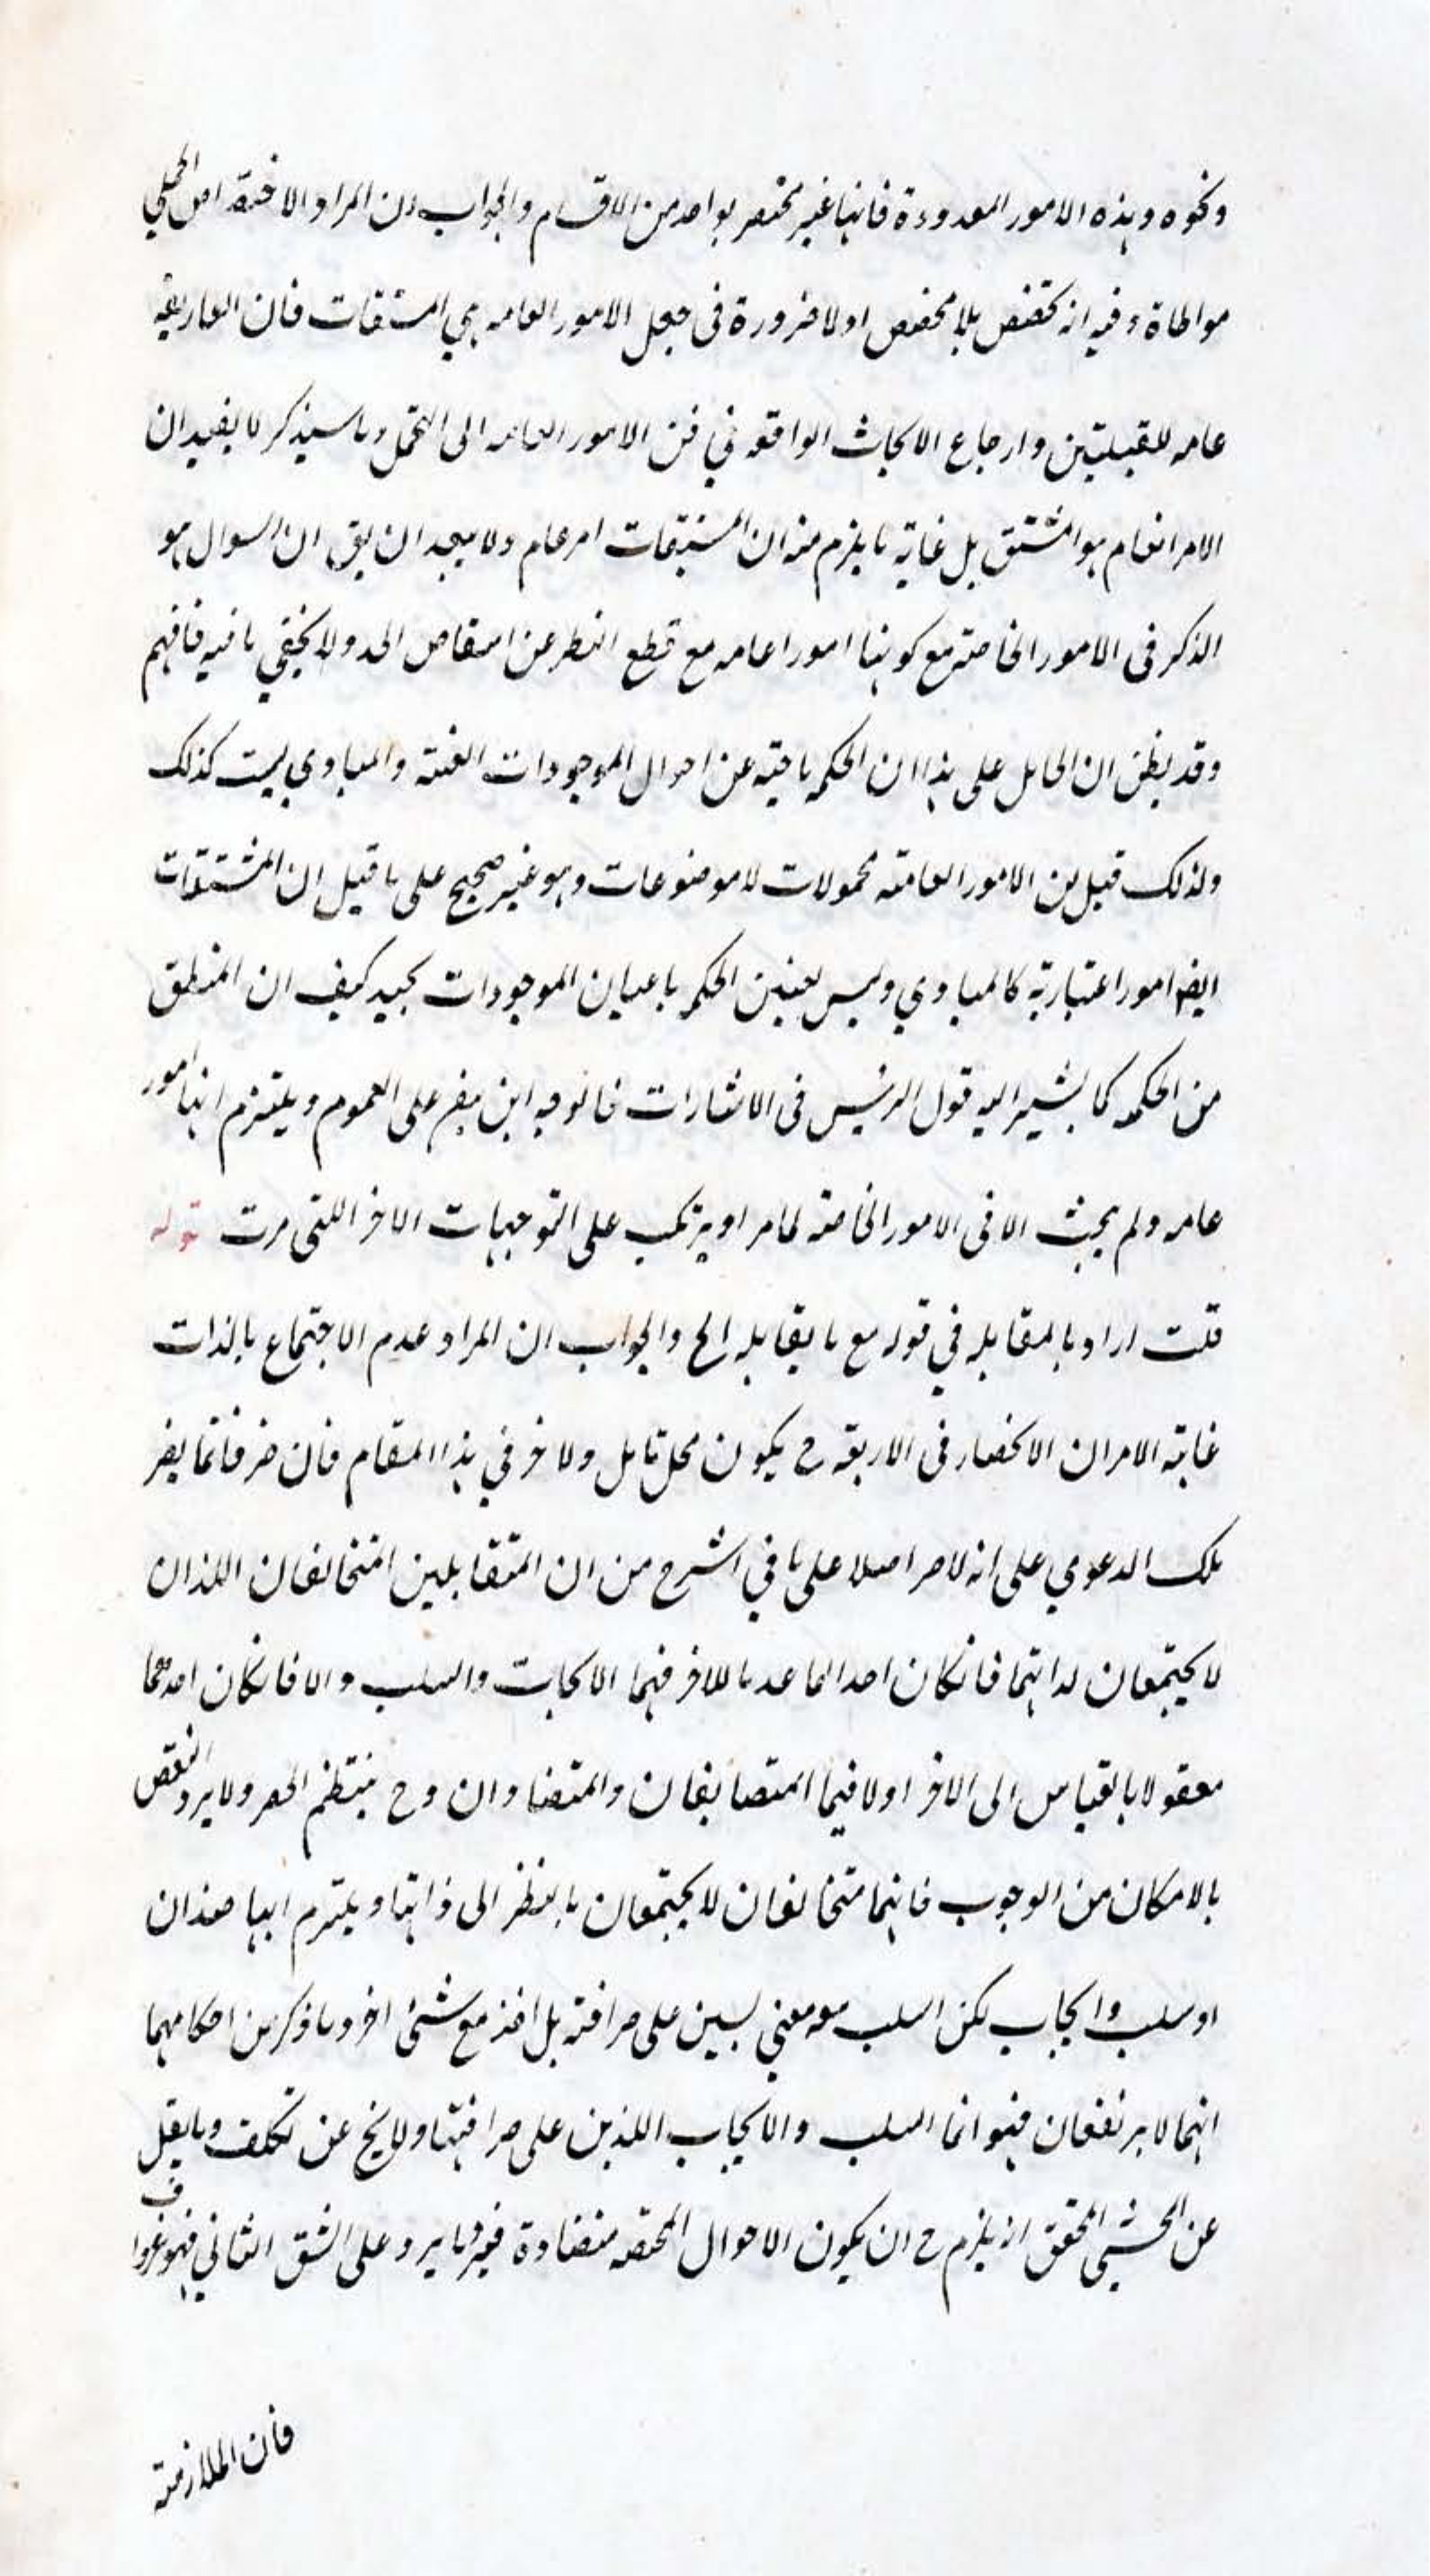 ونحوه وهذه الامور المعدودة فانها غير مختصر بواحد من الاقسام والجواب ان المراد الاختصاص الحملي
مواطاة وفيه انه تخصص بلا مخصص اولا ضرورة فى جعل الامور العامه هي المشتقات فان العاريه
عامه للقبيلتين وارجاع الابحاث الواقعه في فن الامور العامه الى التمحل وما سيذكر لا يفيد ان
الامر العام هو المشتق بل غاية ما يلزم منه ان المشتقات امر عام ولا يبعد ان يق ان السوال هو
الذكر فى الامور الخاصة مع كونها امورا عامه مع قطع النظر عن انتقاص الحد ولا يخفي ما فيه فافهم
وقد يظن ان الحامل على هذا ان الحكمه باحثه عن احوال الموجودات العينه والمبادي ليست كذلك
ولذلك قيل ان الامور العامة محمولات لا موضوعات وهو غير صحيح على ما قيل ان المشتقات
ايضا امور اعتبارية كالمبادي وليس تعيين الحكمه باعيان الموجودات بجيد كيف ان المنطق
من الحكمه كما يشير اليه قول الرئيس فى الاشارات فالوجه ابن يفر على العموم ويلتزم انها امور
عامه ولم يبحث الا فى الامور الخاصة لما مر او يرتكب على التوجيهات الاخر اللتى مرت قوله
قلت اراد بالمقابله في قوله مع ما يقابله الخ والجواب ان المراد عدم الاجتماع بالذات
غاية الامر ان الانحصار فى الاربعة ح يكون محل تامل ولا ضر في هذا المقام فان ضر فانما يضر
تلك الدعوي على انه لا ضر اصلا على ما في الشرح من ان المتقابلين المتخالفان اللذان
لا يجتمعان لذاتهما فانكان احدهما عدما للاخر فهما الايجاب والسلب والا فانكان احدهما
معقولا بالقياس الى الاخر اولا فهما المتضايفان والمتضادان وح ينتظم الحصر ولا يرد النقض
بالامكان من الوجوب فانهما متخالفان لا يجتمعان بالنظر الى ذاتها ويلتزم انهما ضدان
او سلب وايجاب لكن السلب معه معني ليس على صرافته بل اخذ مع شئى اخر وما ذكر من احكامهما
انهما لا يرتفعان فهو انما السلب والايجاب اللذين على صرافتها ولا يخ عن تكلف وما يقل
عن المحشى المحقق انه يلزم ح ان يكون الاحوال المختصه متضادة فيه ما يرد على الشق الثاني فهو
فان الملازمة